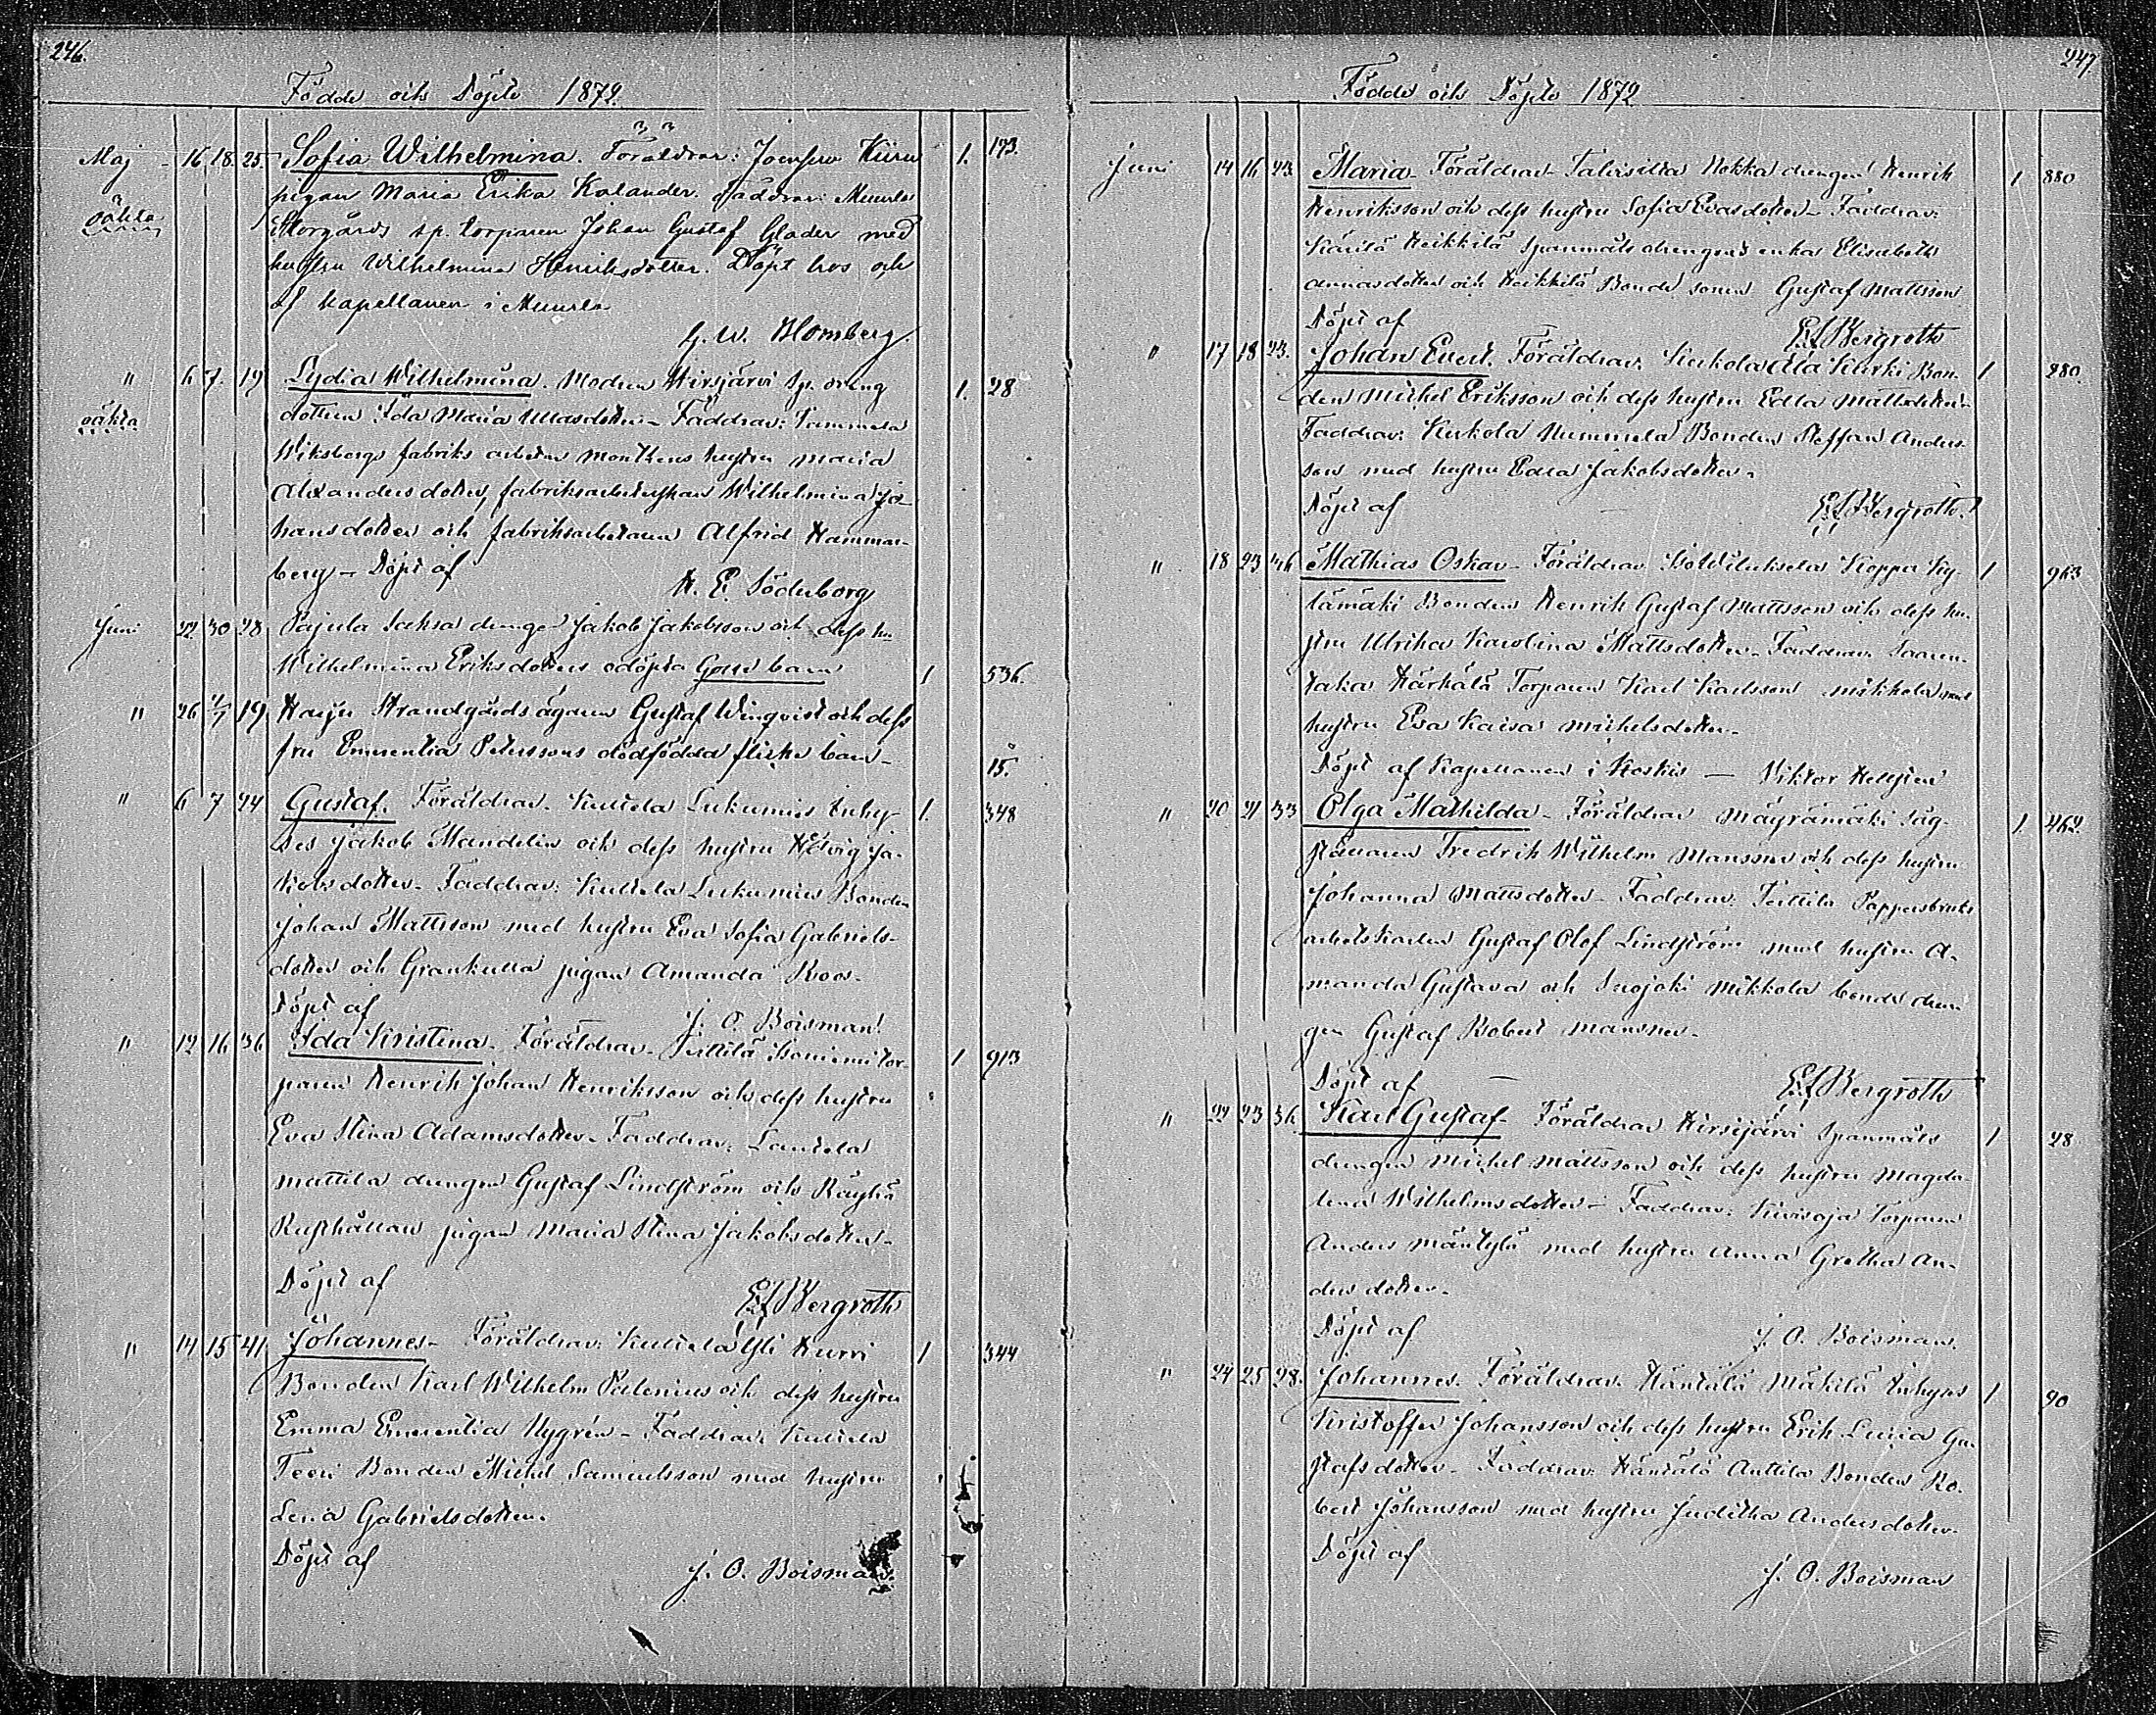 246.
Födde och Döpte 1872.
Maj 16 18. 25. Sofia Wilhelmina. Föräldrar: Joensuu Kiiru 1. 173.
pigan Maria Erika Kalander. Faddrar: Muurla
oäkta Storgårds sp. torparen Johan Gustaf Glader med
hustru Wilhelmina Henriksdotter. Döpt hos och
af kapellanen i Muurla
G. W. Blomberg.
" 6 7. 19 Lydia Wilhelmina. Modren Hirsjärvi Sp. dreng 1. 28
oäkta dottren Ida Maria Ullasdotter – Faddrar: Tammela
Wiksbergs fabriks arbetar Monthens hustru Maria
Alexandersdotter, fabriksarbeterskan Wilhelmina Jo-
hansdotter och fabriksarbetaren Alfrid Hammar-
berg – Döpt af
K. E. Söderborg
Juni 22 30 28 Pajula Saksa drengen Jakob Jakobsson och dess hu
Wilhelmina Eriksdotters odöpta Gosse barn 1 536.
" 26 1/7 19 Haiju Strandgårds ägaren Gustaf Winqvist och dess
fru Emerentia Peterssons dödfödda flicke barn – 15.
" 6 7 24 Gustaf. Föräldrar. Kuttila Lukumies Inhy- 1. 348
ses Jakob Mandelin och dess hustru Hedvig Ja-
kobsdotter. Faddrar: Kuttila Lukumies Bonden
Johan Mattsson med hustru Eva Sofia Gabriels-
dotter och Grankulla pigan Amanda Roos.
Döpt af
J. O. Boisman.
" 12 16 36 Ida Kristina. Föräldrar. Terttilä Isoniemi tor- 1 913
paren Henrik Johan Henriksson och dess hustru
Eva Stina Adamsdotter. Faddrar:
Mattila drengen Gustaf Lindström och
Rusthållare pigan Maria Stina Jakobsdotter –
Döpt af
E. F. Bergroth
" 14 15 41 Johannes – Föräldrar: Kuttila Yli Hurri 1 344
Bonden Karl Wilhelm Palenius och dess hustru
Emma Emerentia Nygrén – Faddrar. Kuttila
Teeri Bonden Michel Samuelsson med hustru
Lena Gabrielsdotter.
Döpt af
J. O. Boisman.
247.
Födde och Döpte 1872
Juni 14 16 23 Maria – Föräldrar Nokka drengen Henrik 1 880
Henriksson och dess hustru Sofia Evasdotter – Faddrar:
Kärilä Heikkilä Spanmåls drengens enka Elisabeth
Annasdotter och Heikkilä Bonde sonen Gustaf Mattsson
Döpt af
E. F. Bergroth
" 17 18 23. Johan Evert. Föräldrar. Kurkola Ala Kurki Bon- 1 280.
den Michel Eriksson och dess hustru Edla Mattsdotter –
Faddrar: Kurkola Nummela Bonden Steffan Anders-
son med hustru Edla Jakobsdotter.
Döpt af
E. F. Bergroth.
" 18 23 36 Mathias Oskar – Föräldrar Iso Wiluksela Koppa Ky- 1 963
lämäki Bonden Henrik Gustaf Mattsson och dess hu-
stru Ulrika Karolina Mattsdotter – Faddrar.
Härkälä Torparen Karl Karlsson Mikkola med
hustru Eva Kaisa Michelsdotter.
Döpt af Kapellanen i Koskis – Viktor Hellsten
" 20 21 33 Olga Mathilda – Föräldrar Mäyrämäki Såg- 1. 462.
Fredrik Wilhelm Mansner och dess hustru
Johanna Mattsdotter – Faddrar. Terttilä Pappersbruks
arbetskarlen Gustaf Olof Lindström med hustru A-
manda Gustava och Inojoki Mikkola bonde dren-
gen Gustaf Robert Mansner.
Döpt af
E. F. Bergroth
" 22 23 36. Karl Gustaf – Föräldrar Hirsijärvi Spanmåls 1 28
drengen Michel Mattsson och dess hustru Magda
lena Wilhelmsdotter – Faddrar: Kivisoja Torparen
Anders Mäntylä med hustru Anna Gretha An-
dersdotter.
Döpt af
J. O. Boisman.
" 24 25 28. Johannes. Föräldrar. Häntälä Mäkilä Inhyses 1 90
Kristoffer Johansson och dess hustru Erik Lovisa Gu
stafsdotter – Faddrar. Häntälä Anttila Bonden Ro-
bert Johansson med hustru Juditha Andersdotter.
Döpt af
J. O. Boisman